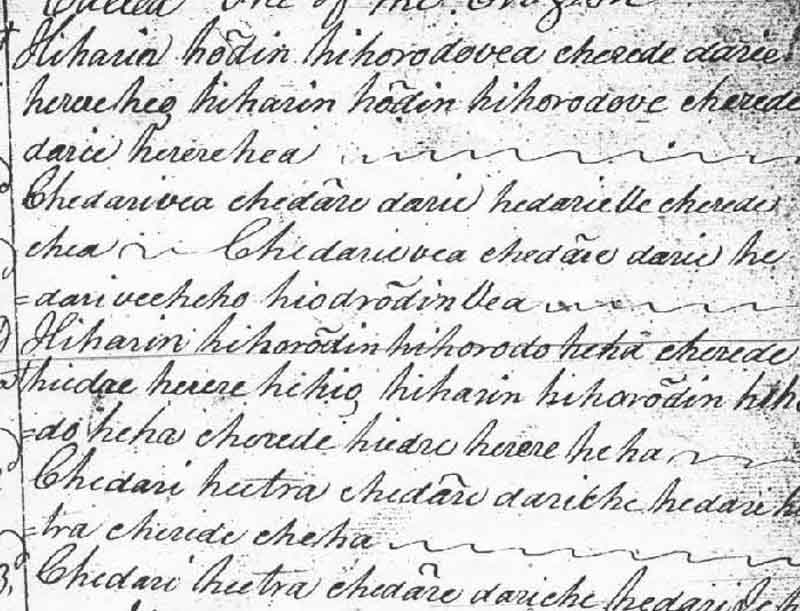 Called one of the
Hiharin hōdin hihorodovea cherede darie
herereheo hiharin hōdin hihorodove cherede
darie hererehea
Chedarivea chedāre darie hedarieVe cherede
chea Chedarievea chedāre darie he
=dariveeheho hiodrōdinVea
Hiharin hihorōdinhihorodo heha cherede
hiedae herere hehio hiharin hihorōdin hiho
=do heha cherede hiedre herere heha
Chedari heetra chedāre dariche hedare he
=tra cherede cheha
Chedari heetra chedāre dariche hedari